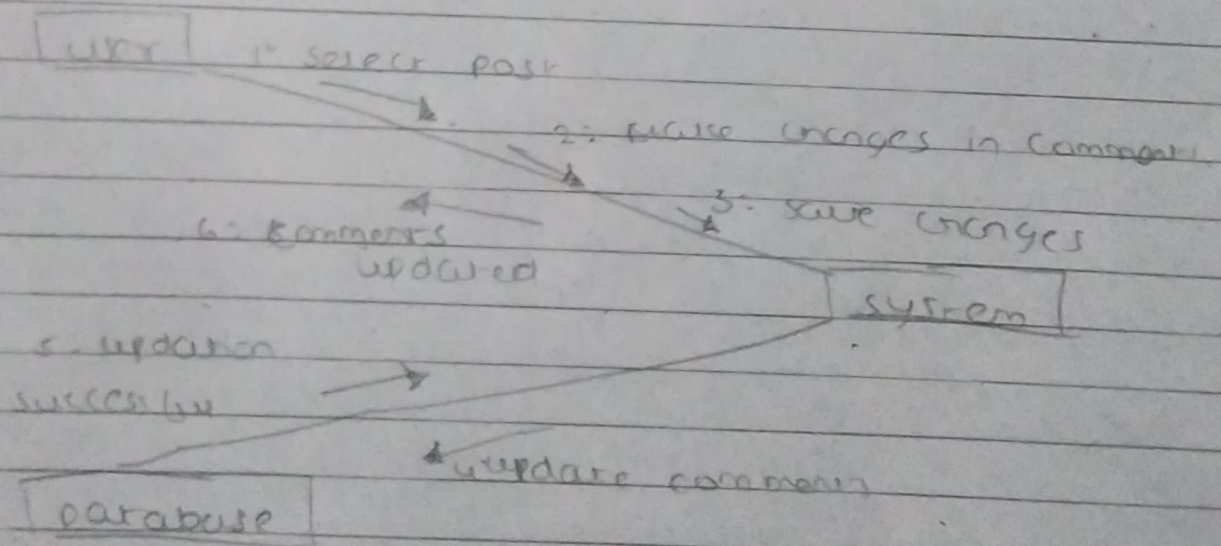 user
1: select post
2: make changes in comment
3: save changes
6: comments
updated
system
5. updation
successful
4: update comment
database